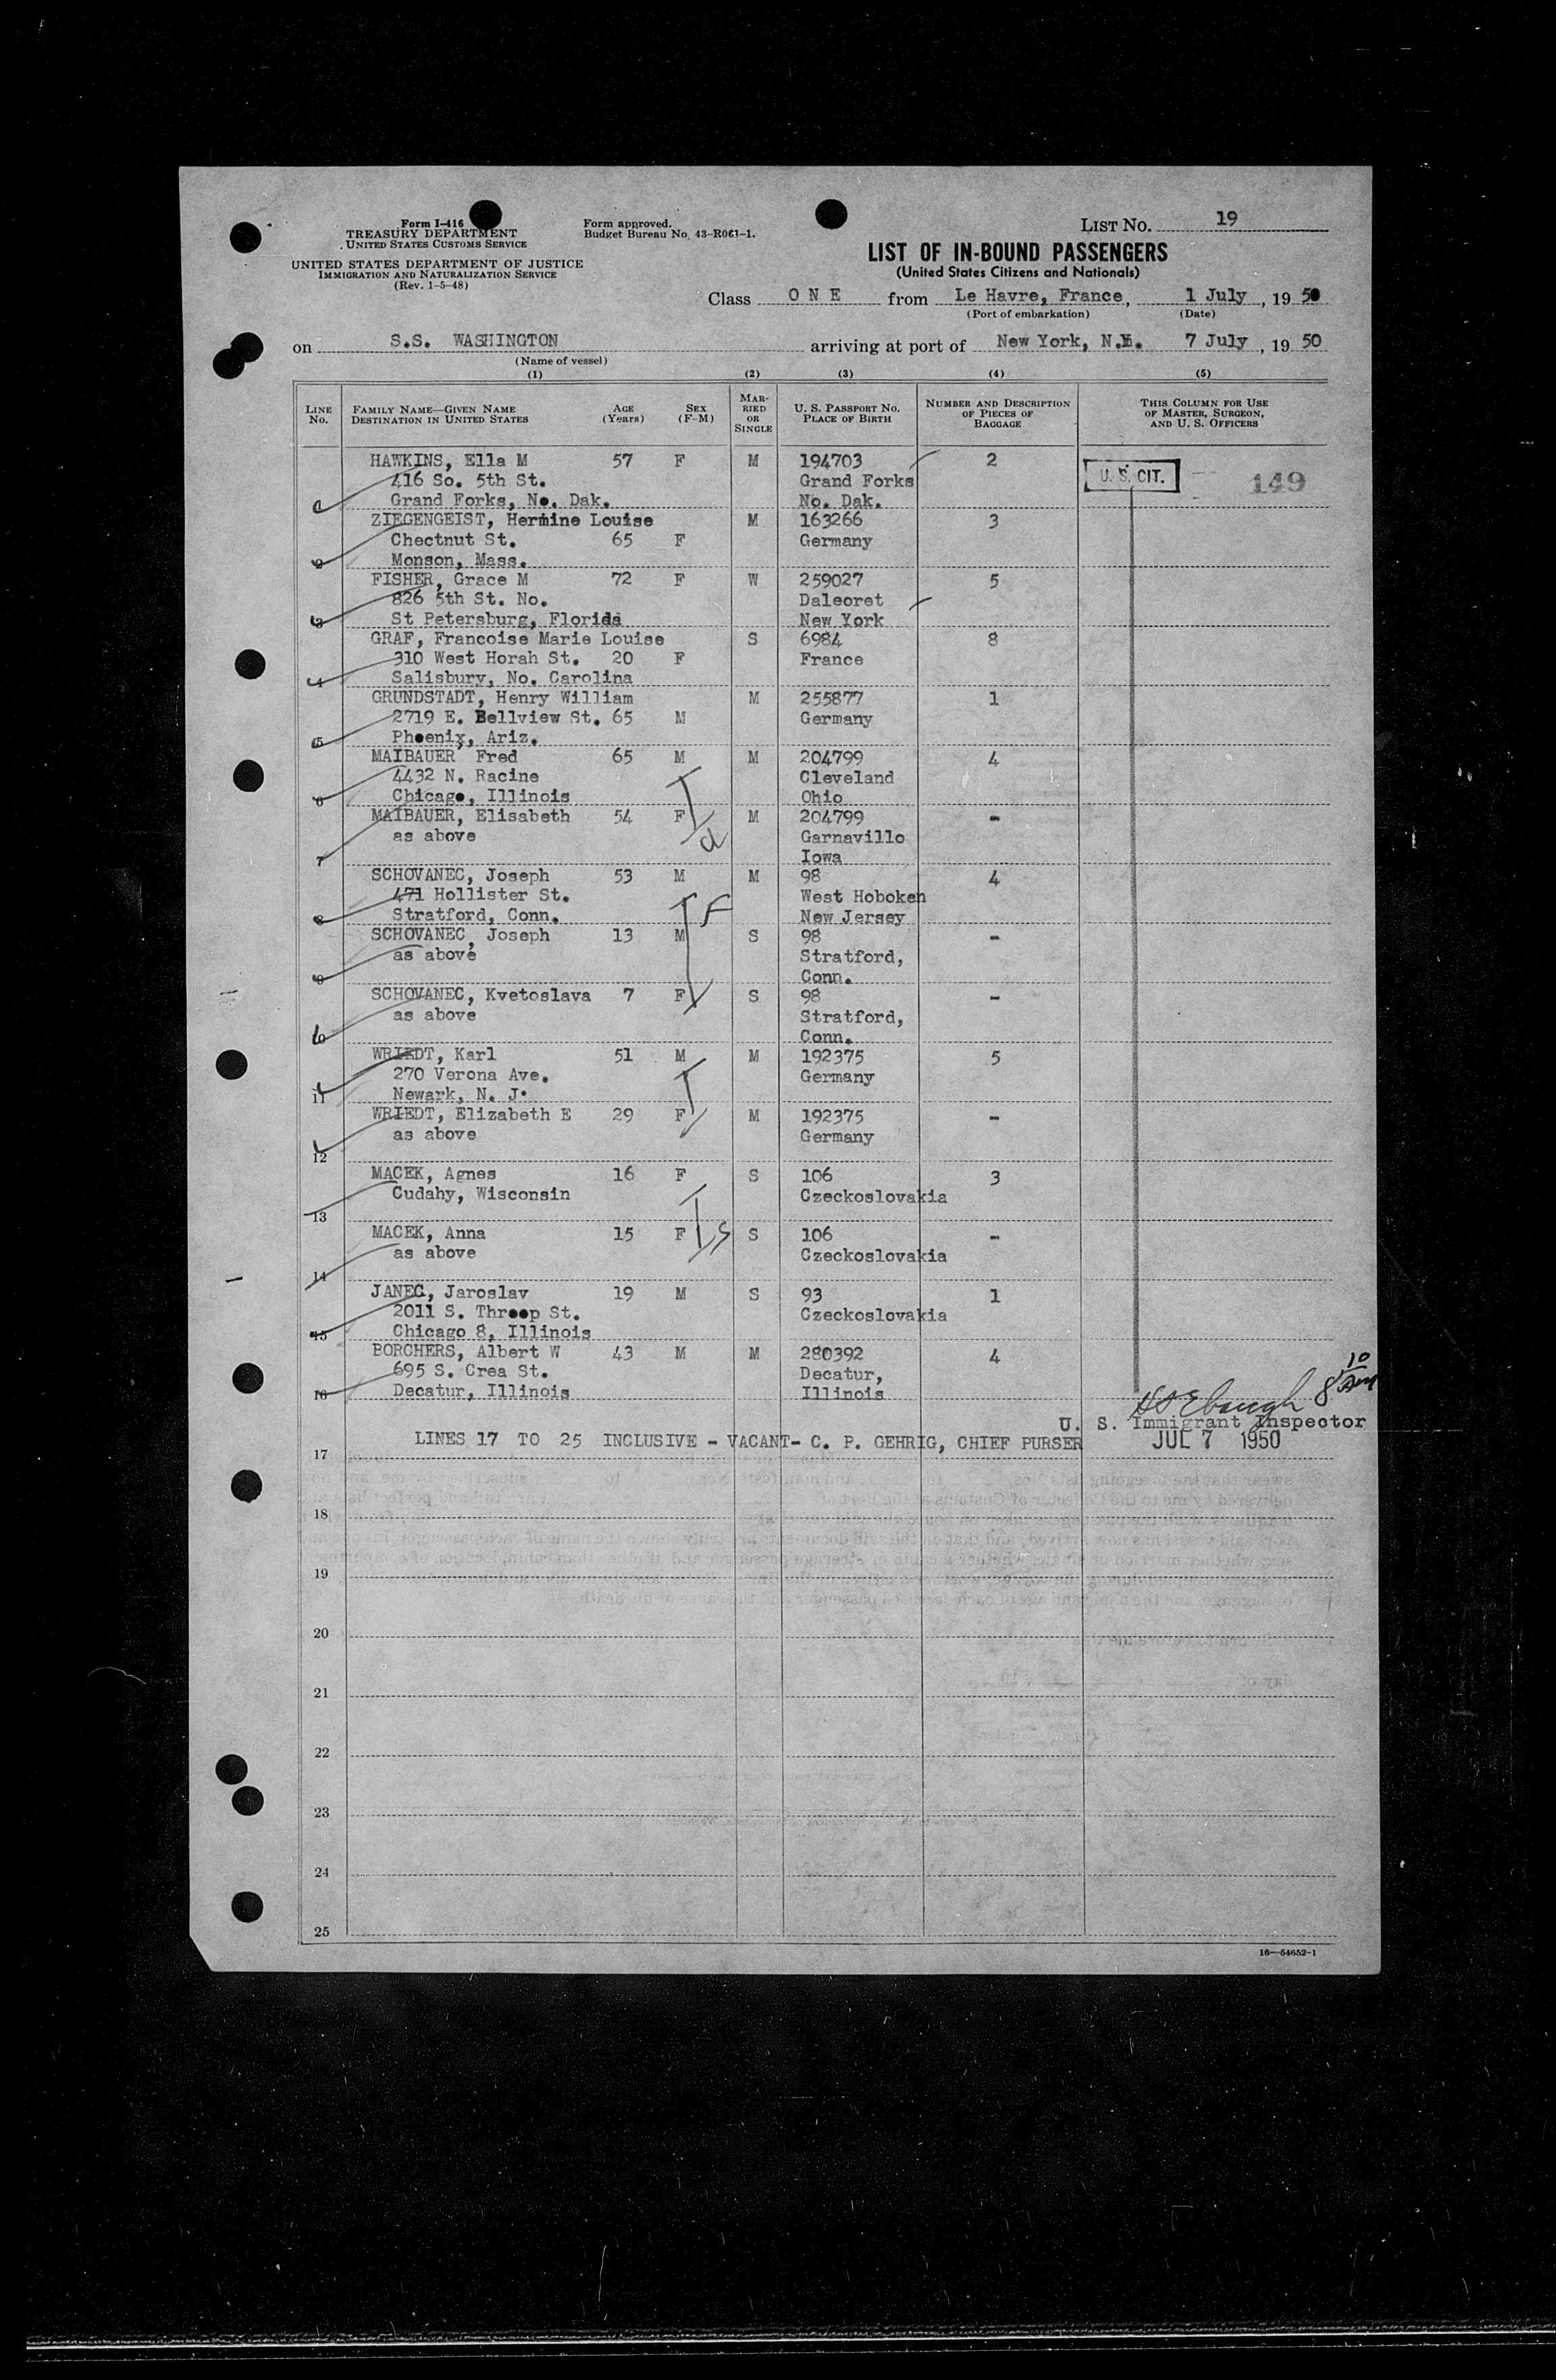 Form I-416
TREASURY DEPARTMENT
UNITED STATES CUSTOMS SERVICE
UNITED STATES DEPARTMENT OF JUSTICE
IMMIGRATION AND NATURALIZATION SERVICE
(Rev. 1-5-48)
Form approved.
Budget Bureau No. 43-R061-1.
LIST NO. 19
LIST OF IN-BOUND PASSENGERS
(United States Citizens and Nationals)
Class O N E from Le Havre, France, 1 July, 19 50
(Port of embarkation) (Date)
on S.S. WASHINGTON arriving at port of New York, N.Y. 7 July, 19 50
(Name of vessel)
(1) (2) (3) (4) (5)
LINE NO. FAMILY NAME—GIVEN NAME DESTINATION IN UNITED STATES AGE (Years) SEX (F-M) MARRIED OR SINGLE U. S. PASSPORT NO. PLACE OF BIRTH NUMBER AND DESCRIPTION OF PIECES OF BAGGAGE THIS COLUMN FOR USE OF MASTER, SURGEON, AND U. S. OFFICERS
HAWKINS, Ella M 57 F M 194703 2 U. S. CIT. 149
416 So. 5th St. Grand Forks
Grand Forks, No. Dak. No. Dak.
ZIEGENGEIST, Hermine Louise M 163266 3
Chectnut St. 65 F Germany
2 Monson, Mass.
FISHER, Grace M 72 F W 259027 5
826 5th St. No. Daleoret
3 St Petersburg, Florida New York
GRAF, Francoise Marie Louise S 6984 8
310 West Horah St. 20 F France
4 Salisbury, No. Carolina
GRUNDSTADT, Henry William M 255877 1
2719 E. Bellview St. 65 M Germany
5 Phoenix, Ariz.
MAIBAUER, Fred 65 M M 204799 4
4432 N. Racine Cleveland
6 Chicago, Illinois Ohio
MAIBAUER, Elisabeth 54 F M 204799 -
as above Garnavillo
7 Iowa
SCHOVANEC, Joseph 53 M M 98 4
471 Hollister St. West Hoboken
8 Stratford, Conn. F New Jersey
SCHOVANEC, Joseph 13 M S 98 -
as above Stratford,
9 Conn.
SCHOVANEC, Kvetoslava 7 F S 98 -
as above Stratford,
10 Conn.
WRIEDT, Karl 51 M M 192375 5
270 Verona Ave. Germany
11 Newark, N. J.
WRIEDT, Elizabeth E 29 F M 192375 -
as above Germany
12
MACEK, Agnes 16 F S 106 3
Cudahy, Wisconsin Czeckoslovakia
13
MACEK, Anna 15 F S 106 -
as above Czeckoslovakia
14
JANEC, Jaroslav 19 M S 93 1
2011 S. Throop St. Czeckoslovakia
15 Chicago 8, Illinois
BORCHERS, Albert W 43 M M 280392 4
695 S. Crea St. Decatur,
16 Decatur, Illinois Illinois
8 10 AM
U. S. Immigrant Inspector
17 LINES 17 TO 25 INCLUSIVE - VACANT- C. P. GEHRIG, CHIEF PURSER JUL 7 1950
18
19
20
21
22
23
24
25
16—54652-1